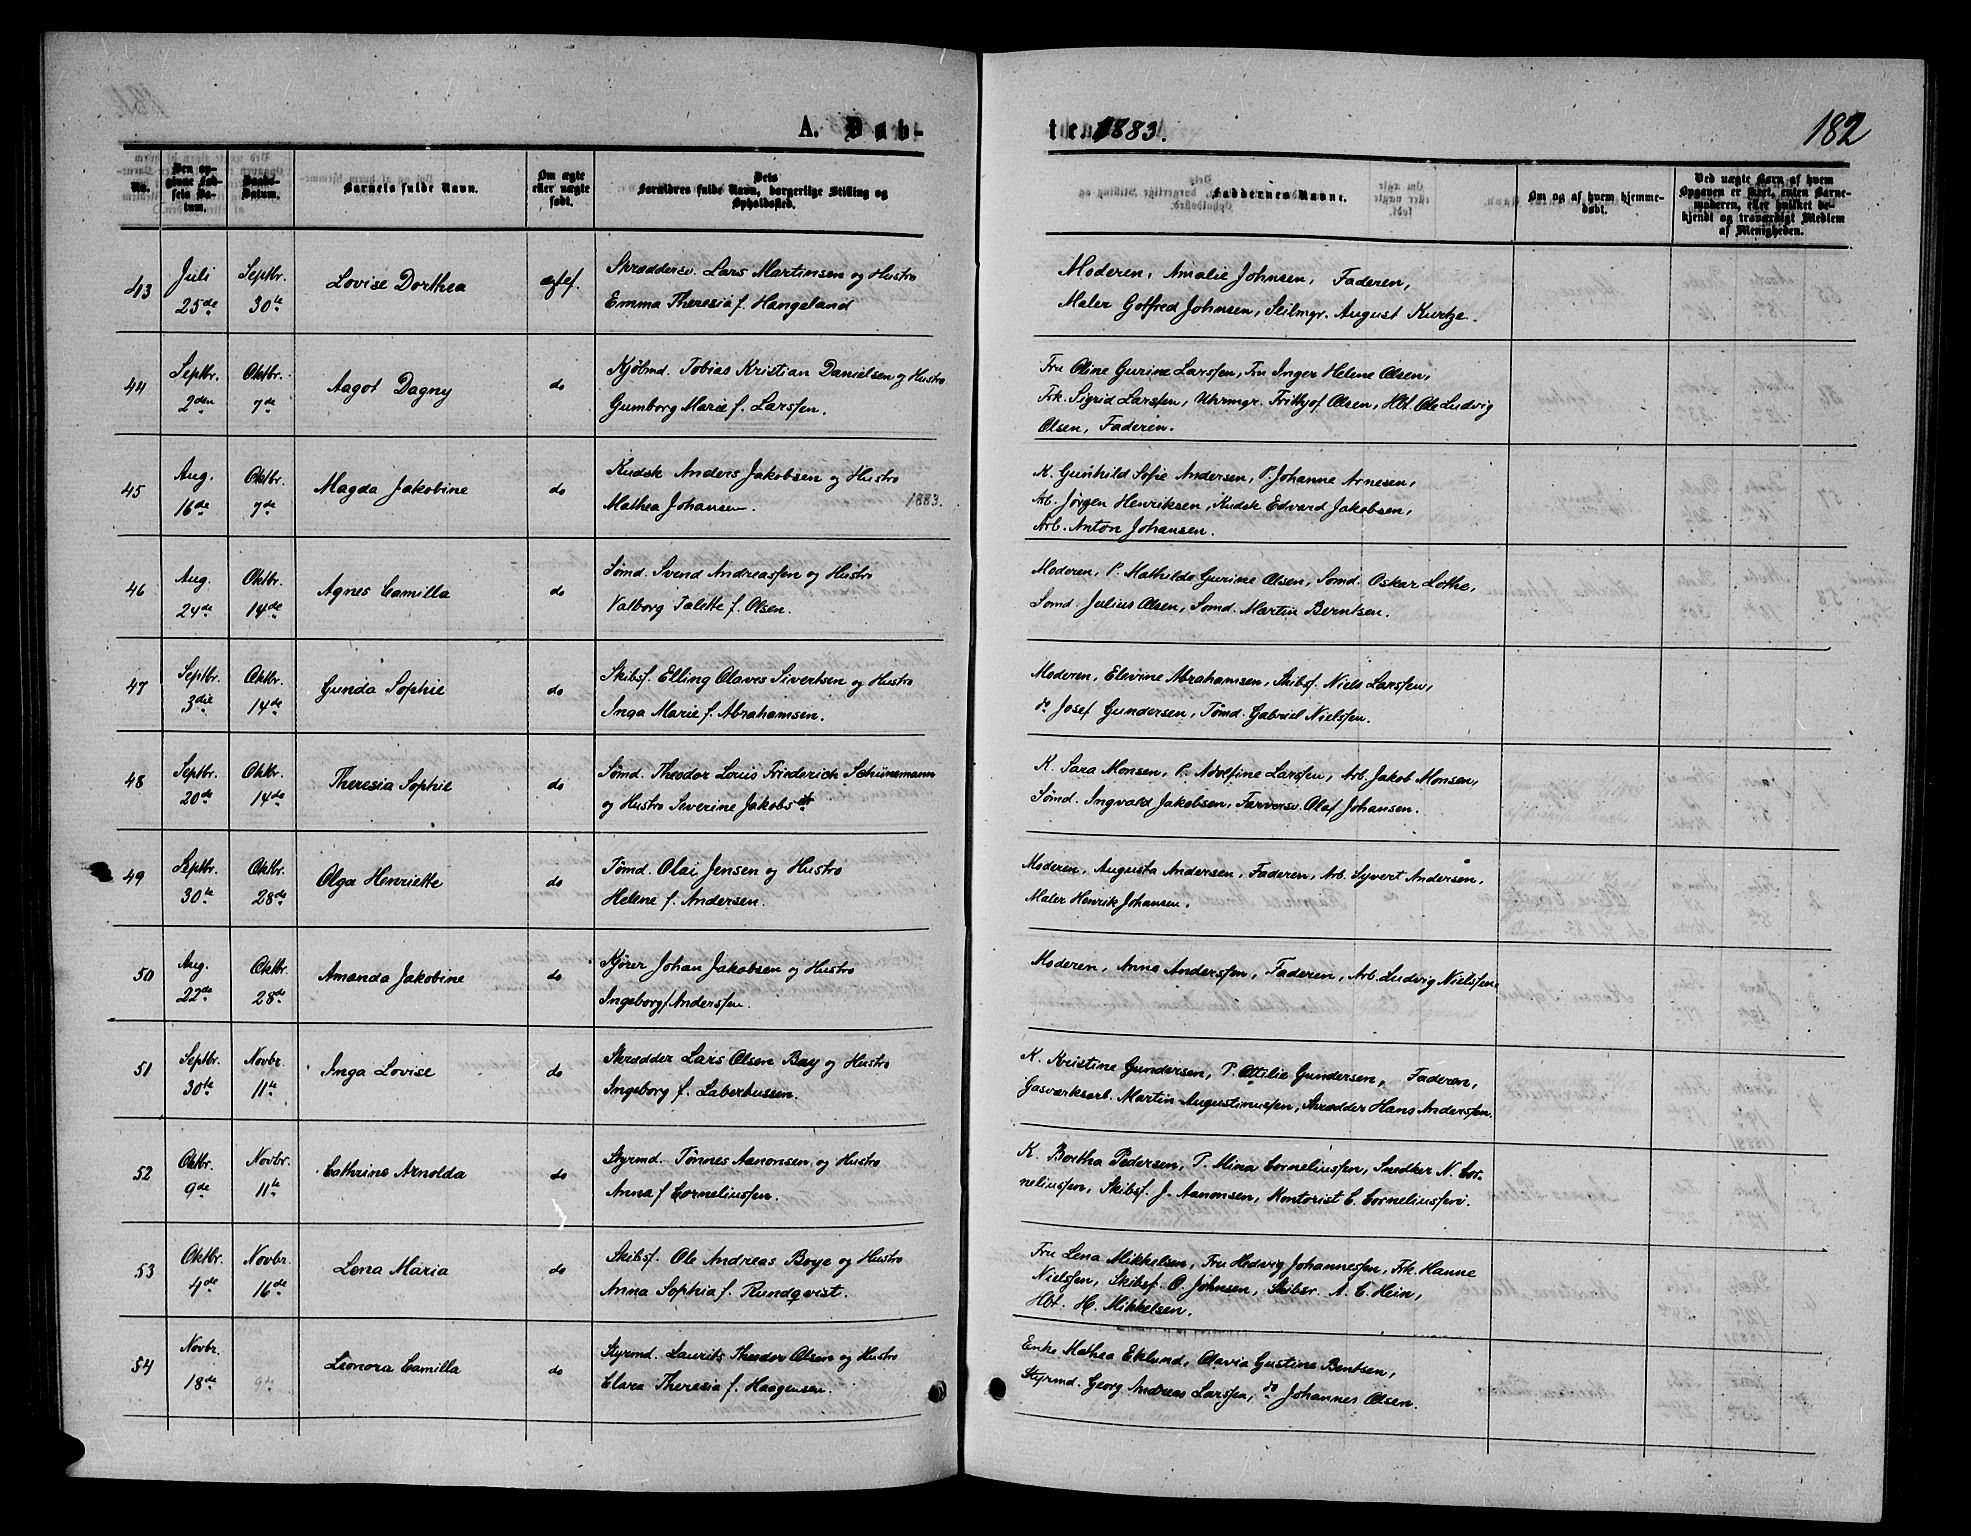 A. Døb-
ten 1883.
182
No.
Den op-
givne Fød-
sels Da-
tum.
Daabs-
Datum.
Barnets fulde Navn.
Om ægte
eller uægte
født.
Dets
Forældres fulde Navn, borgerlige Stilling og
Opholdssted.
Faddernes Navne.
Om og af hvem hjemme-
døbt.
Ved uægte Børn af hvem
Opgaven er skeet, enten Barne-
moderen, eller hvilket be-
kjendt og troværdigt Medlem
af Menigheden.
43 Juli 25de Septbr. 30te Lovise Dorthea ægtef. Skræddersv. Lars Martinsen og Hustro
Emma Theresia f. Hangeland
Moderen, Amalie Johnsen, Faderen,
Maler Gotfred Johnsen, Seilmgr. August Kurtze.
44 Septbr. 2den Oktbr. 7de Aagot Dagny do Kjøbmd. Tobias Kristian Danielsen og Hustro
Gumborg Marie f. Larssen.
Fru Oline Gurine Larssen, Fru Inger Helene Olsen,
Frk. Sigrid Larssen, Uhrmgr. Frithjof Olsen, Hbt. Ole Ludvig
Olsen, Faderen.
45 Aug. 16de Oktbr. 7de Magda Jakobine do Kudsk Anders Jakobsen og Hustro
Mathea Johansen. 1883.
K. Gunhild Sofie Andersen, P. Johanne Arnesen,
Arb. Jørgen Henriksen, Kudsk Edvard Jakobsen,
Arb. Anton Johansen.
46 Aug. 24de Oktbr. 14de Agnes Camilla do Sømd. Svend Andreassen og Hustro
Valborg Talette f. Olsen.
Moderen, P. Mathilde Gurine Olsen, Sømd. Oskar Lothe,
Sømd. Julius Olsen, Sømd. Martin Berntsen.
47 Septbr. 3die Oktbr. 14de Gunda Sophie do Skibsf. Elling Olaves Sivertsen og Hustro
Inga Marie f. Abrahamsen.
Moderen, Elevine Abrahamsen, Skibsf. Niels Larssen,
do Josef Gundersen, Tømd. Gabriel Nielssen.
48 Septbr. 20de Oktbr. 14de Theresia Sophie do Sømd. Theodor Louis Friederich Schünemann
og Hustro Severine Jakobsdt
K. Sara Monsen, P. Adolfine Larssen, Arb. Jakob Monsen,
Sømd. Ingvald Jakobsen, Farversv. Olaf Johansen.
49 Septbr. 30te Oktbr. 28de Olga Henriette do Tømd. Olai Jensen og Hustro
Helene f. Andersen.
Moderen, Augusta Andersen, Faderen, Arb. Syvert Andersen,
Maler Henrik Johansen.
50 Aug. 22de Oktbr. 28de Amanda Jakobine do Kjører Johan Jakobsen og Hustro
Ingeborg f. Anderssen.
Moderen, Anne Anderssen, Faderen, Arb. Ludvig Nielssen.
51 Septbr. 30te Novbr. 11te Inga Lovise do Skrædder Lars Olsen Bay og Hustro
Ingeborg f. Laberhussen.
K. Kristine Gundersen, P. Ottilie Gundersen, Faderen,
Gasværksarb. Martin Augustinussen, Skrædder Hans Anderssen.
52 Oktbr. 9de Novbr. 11te Cathrine Arnolda do Styrmd. Tønnes Aanonsen og Hustro
Anna f. Corneliussen.
K. Bertha Pedersen, P. Mina Corneliussen, Snedker N. Cor-
neliussen, Skibsf. J. Aanonsen, Kontorist C. Corneliussen.
53 Oktbr. 4de Novbr. 16de Lena Maria do Skibsf. Ole Andreas Boye og Hustro
Anna Sophia f. Rundqvist.
Fru Lena Mikkelsen, Fru Hedvig Johannessen, Frk. Hanne
Nielssen, Skibsf. O. Johnsen, Skibsr. A. C. Hein,
Hbt. H. Mikkelsen.
54 Novbr. 18de Leonora Camilla do Styrmd. Laurits Theodor Olsen og Hustro
Clara Theresia f. Haagensen.
Enke Mathea Eklund, Olavia Gustine Bentsen,
Styrmd. Georg Andreas Larssen, do Johannes Olsen.